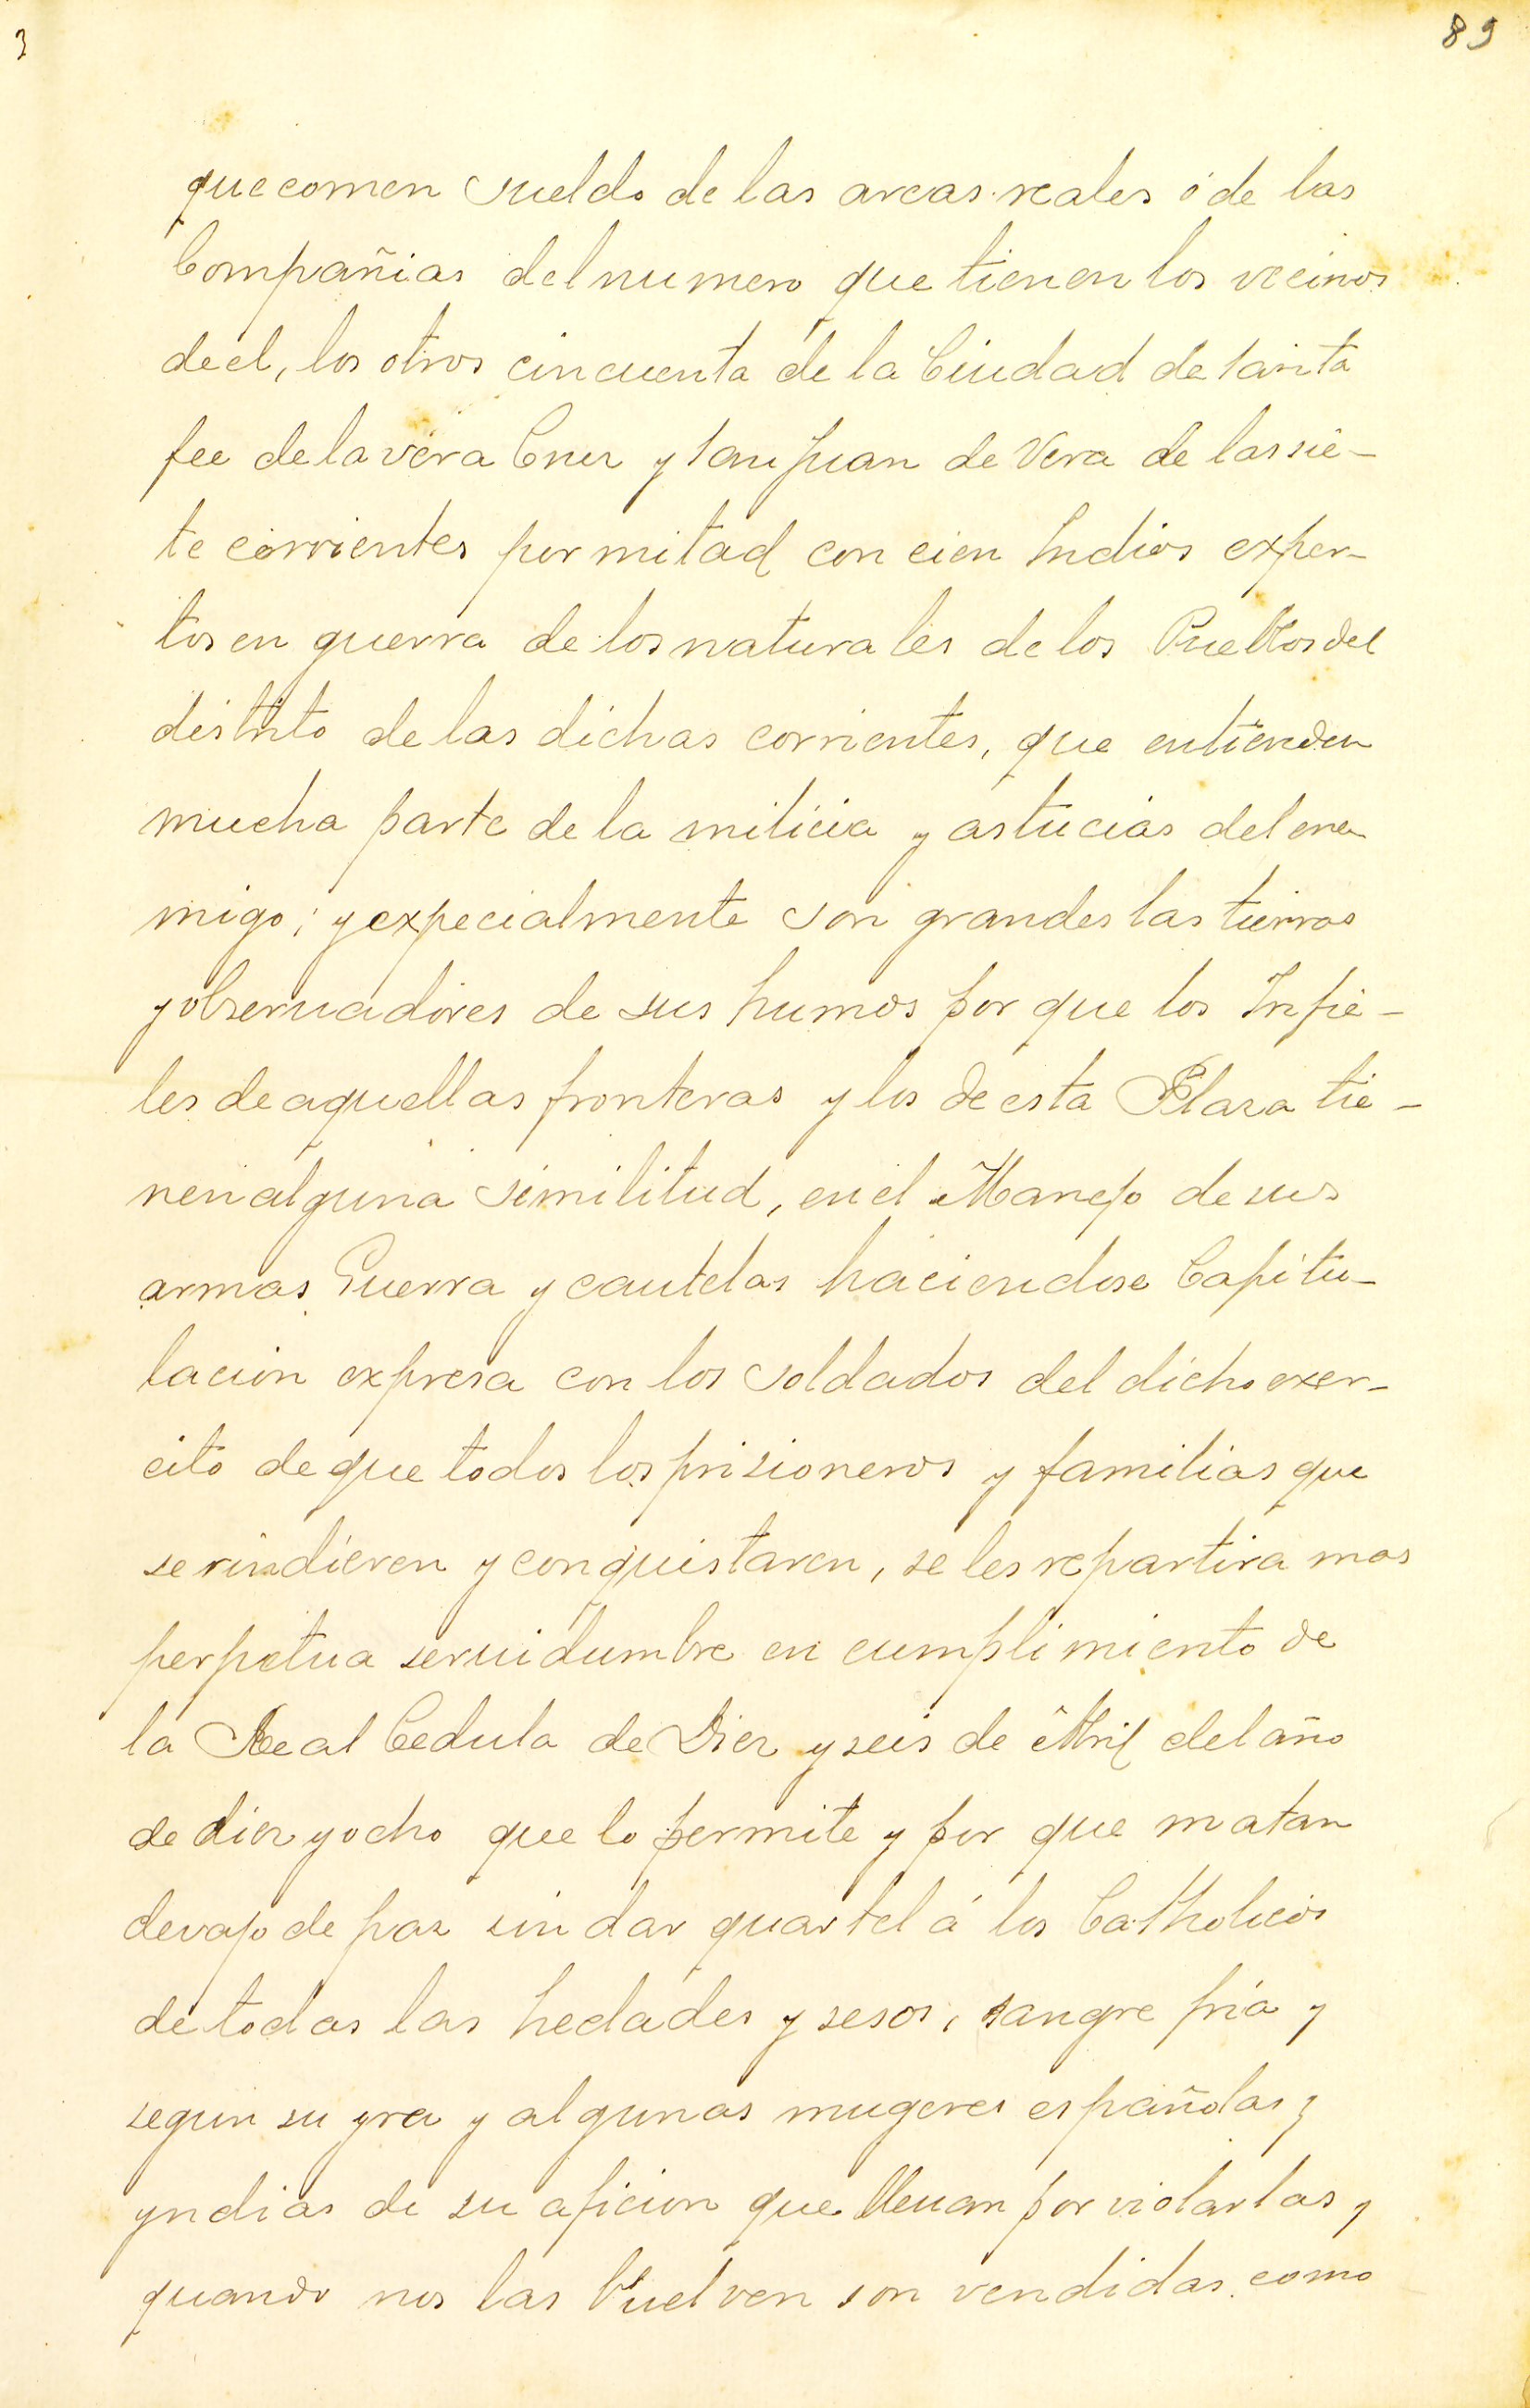 89
3
que comen sueldo de las arcas reales ó de las
Compañias del numero que tienen los vecinos
de el, los otros cincuenta de la Ciudad de santa
fee de la vera Cruz y san Juan de Vera de las sie-
te corrientes por mitad con cien Indios exper-
tos en guerra de los naturales de los Pueblos del
distrito de las dichas corrientes, que entienden
mucha parte de la milicia y astucias del ene
migo; y expecialmente son grandes las tierras
y obseruadores de sus humos por que los Infie-
les de aquellas fronteras y los de esta Plaza tie-
nen alguna similitud, en el Manejo de sus
armas Guerra y cautelas haciendose Capitu-
lacion expresa con los soldados del dicho exer-
cito de que todos los prisioneros y familias que
se rindieren y conquistaren, se les repartira mas
perpetua seruidumbre en cumplimiento de
la Real Cedula de Diez y seis de Abril del año
de diez y ocho que lo permite y por que matan
devajo de paz sin dar quartel á los Catholicos
de todas las hedades y sesos, sangre fria y
segun su yra y algunas mugeres españolas y
yndias de su aficion que lleuan por violarlas y
quando nos las Vuelven son vendidas como